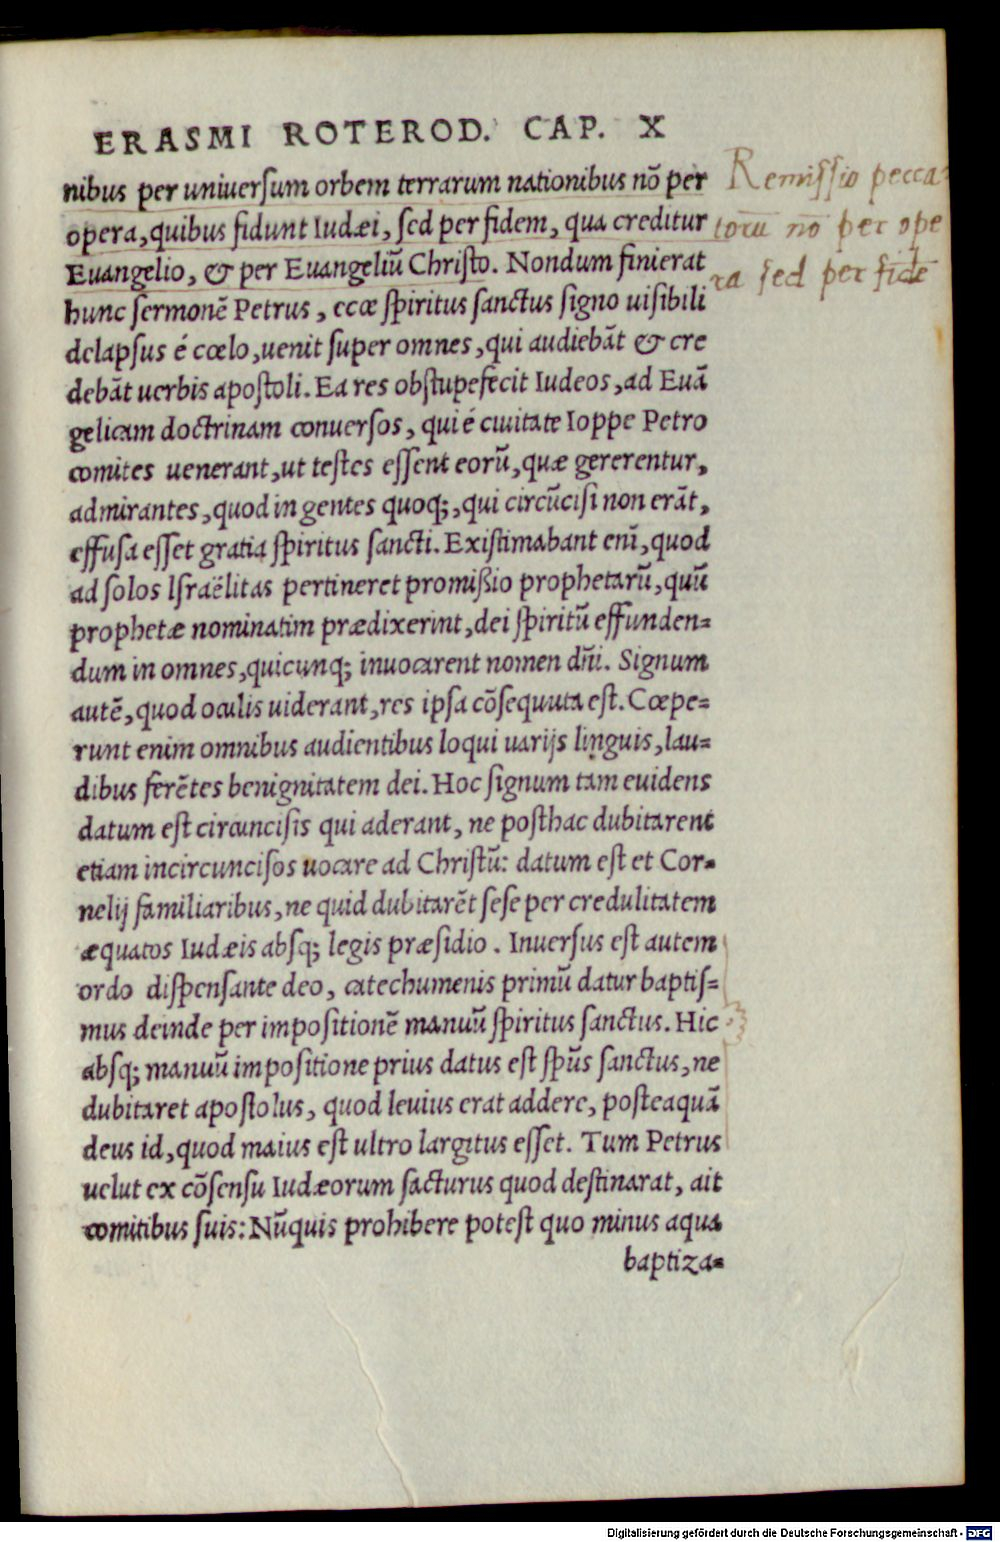 ERASMI ROTEROD. CAP. X
nibus per uniuerſum orbem terrarum nationibus nō per
opera, quibus fidunt Iudæi, ſed per fidem, qua creditur
Euangelio, & per Euangeliū Chriſto. Nondum finierat
hunc ſermonē Petrus, eccæ ſpiritus ſanctus ſigno uiſibili
delapſus é cœlo, uenit ſuper omnes, qui audiebāt & cre
debāt uerbis apoſtoli. Ea res obſtupefecit Iudeos, ad Euā
gelicam doctrinam conuerſos, qui é ciuitate Ioppe Petro
comites uenerant, ut teſtes eſſent eorū, quæ gererentur,
admirantes, quod in gentes quoq;, qui circūciſi non erāt,
effuſa eſſet gratia ſpiritus ſancti. Exiſtimabant enī, quod
ad ſolos Iſraëlitas pertineret promißio prophetarū, quū
prophetæ nominatim prædixerint, dei ſpiritū effunden=
dum in omnes, quicunq; inuocarent nomen dn̄i. Signum
autē, quod oculis uiderant, res ipſa cōſequuta eſt. Cœpe=
runt enim omnibus audientibus loqui uarijs linguis, lau=
dibus ferētes benignitatem dei. Hoc ſignum tam euidens
datum eſt circunciſis qui aderant, ne poſthac dubitarent
etiam incircunciſos uocare ad Chriſtū: datum eſt et Cor=
nelij familiaribus, ne quid dubitarēt ſeſe per credulitatem
æquatos Iudæis abſq; legis præſidio. Inuerſus eſt autem
ordo diſpenſante deo, catechumenis primū datur baptiſ=
mus deinde per impoſitionē manuū ſpiritus ſanctus. Hic
abſq; manuū impoſitione prius datus eſt ſpūs ſanctus, ne
dubitaret apoſtolus, quod leuius erat addere, poſteaquā
deus id, quod maius eſt ultro largitus eſſet. Tum Petrus
uelut ex cōſenſu Iudæorum facturus quod deſtinarat, ait
comitibus ſuis: Nūquis prohibere poteſt quo minus aqua
baptiza=
Remiſſio pecca-
torū nō per ope
ra ſed per fidē
Digitalisierung gefördert durch die Deutsche Forschungsgemeinschaft - DFG